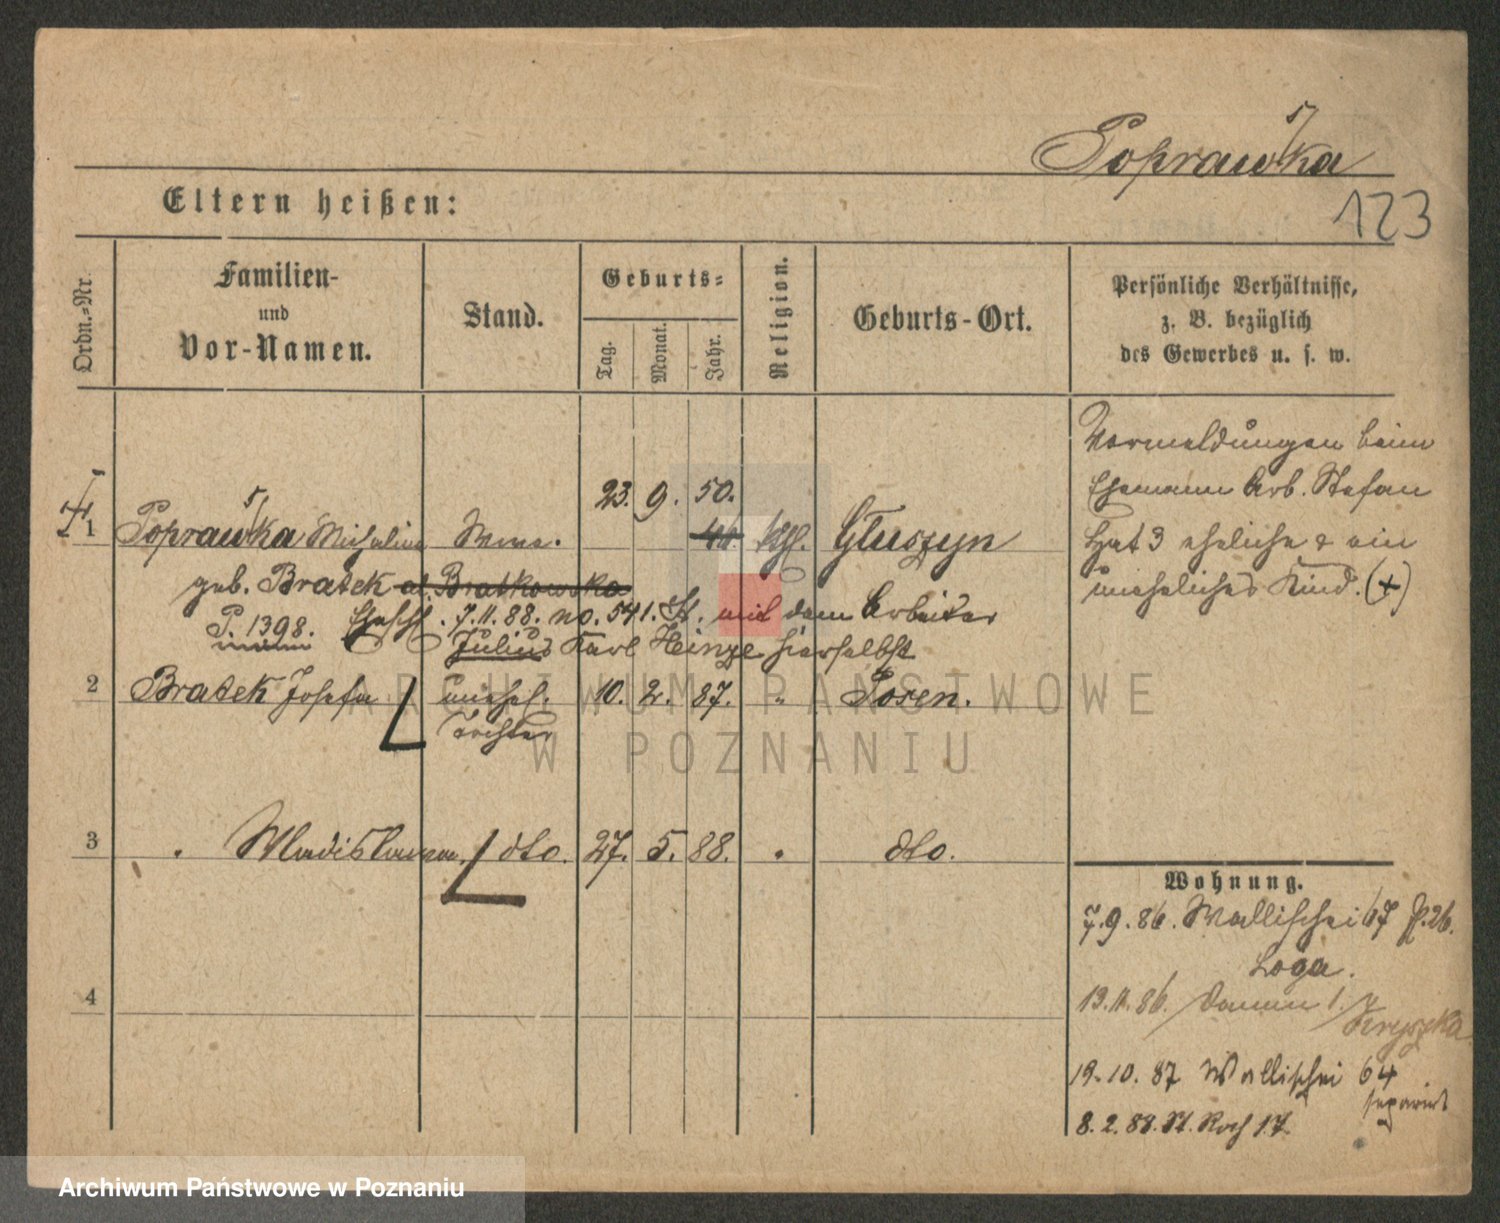 Poprawska
123
Eltern heißen:
Ordn.-Nr.
Familien-
und
Vor-Namen.
Stand.
Geburts-
Tag.
Monat.
Jahr.
Religion.
Geburts-Ort.
Persönliche Verhältnisse,
z. B. bezüglich
des Gewerbes u. s. w.
Vormeldungen beim
Ehemann Arb. Stefan
Hat 3 eheliche & ein
uneheliches Kind. (+)
23. 9. 50.
1 Poprawska Michalina Wwe. 44. kth. Głuszyn
geb. Bratek al. Bratkowska
P. 1398. Eheschl. 7.11.88. no. 541. St. mit dem Arbeiter
Julius Karl Heinze hierselbst
2 Bratek Josefa unehel. 10. 2. 87. " Posen.
Tochter
3 " Wladislawa dto. 27. 5. 88. " dto.
4
Wohnung.
7.9.86. Wallischei 67 P.26.
Loga.
13.11.86. Damm 1.
Kryszka
19.10.87 Wallischei 64
separirt
8.2.88. St. Roch 17.
ARCHIWUM PAŃSTWOWE
W POZNANIU
Archiwum Państwowe w Poznaniu